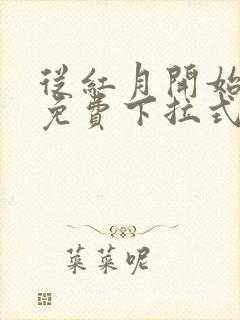 從紅月開始
免費下拉式
菜菜呢